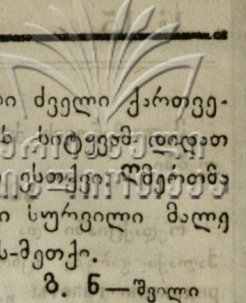 ი ძველი ქართვე-
ს სიტყვამ დიდათ
ესთქვი. ღმერთმა
ი სურვილი მალე
ს-მეთქი.
ზ. ნ—შვილი